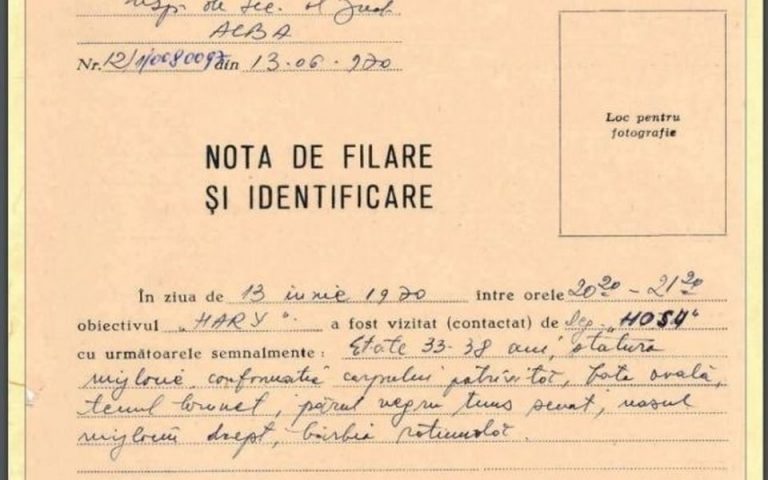 Insp. de sec. al Jud.
ALBA
Nr. 12/ din 13.06.970
Loc pentru
fotografie
NOTA DE FILARE
ȘI IDENTIFICARE
În ziua de 13 iunie 1970 între orele 20²⁰ - 21²⁰
obiectivul „HARY“ a fost vizitat (contactat) de leg. „HOSU“
cu următoarele semnalmente: Etate 33-38 ani, statură
mijlocie, conformația corpului potrivită, fața ovală,
tenul brunet, părul negru tuns scurt, nasul
mijlociu drept, bărbia rotundă.